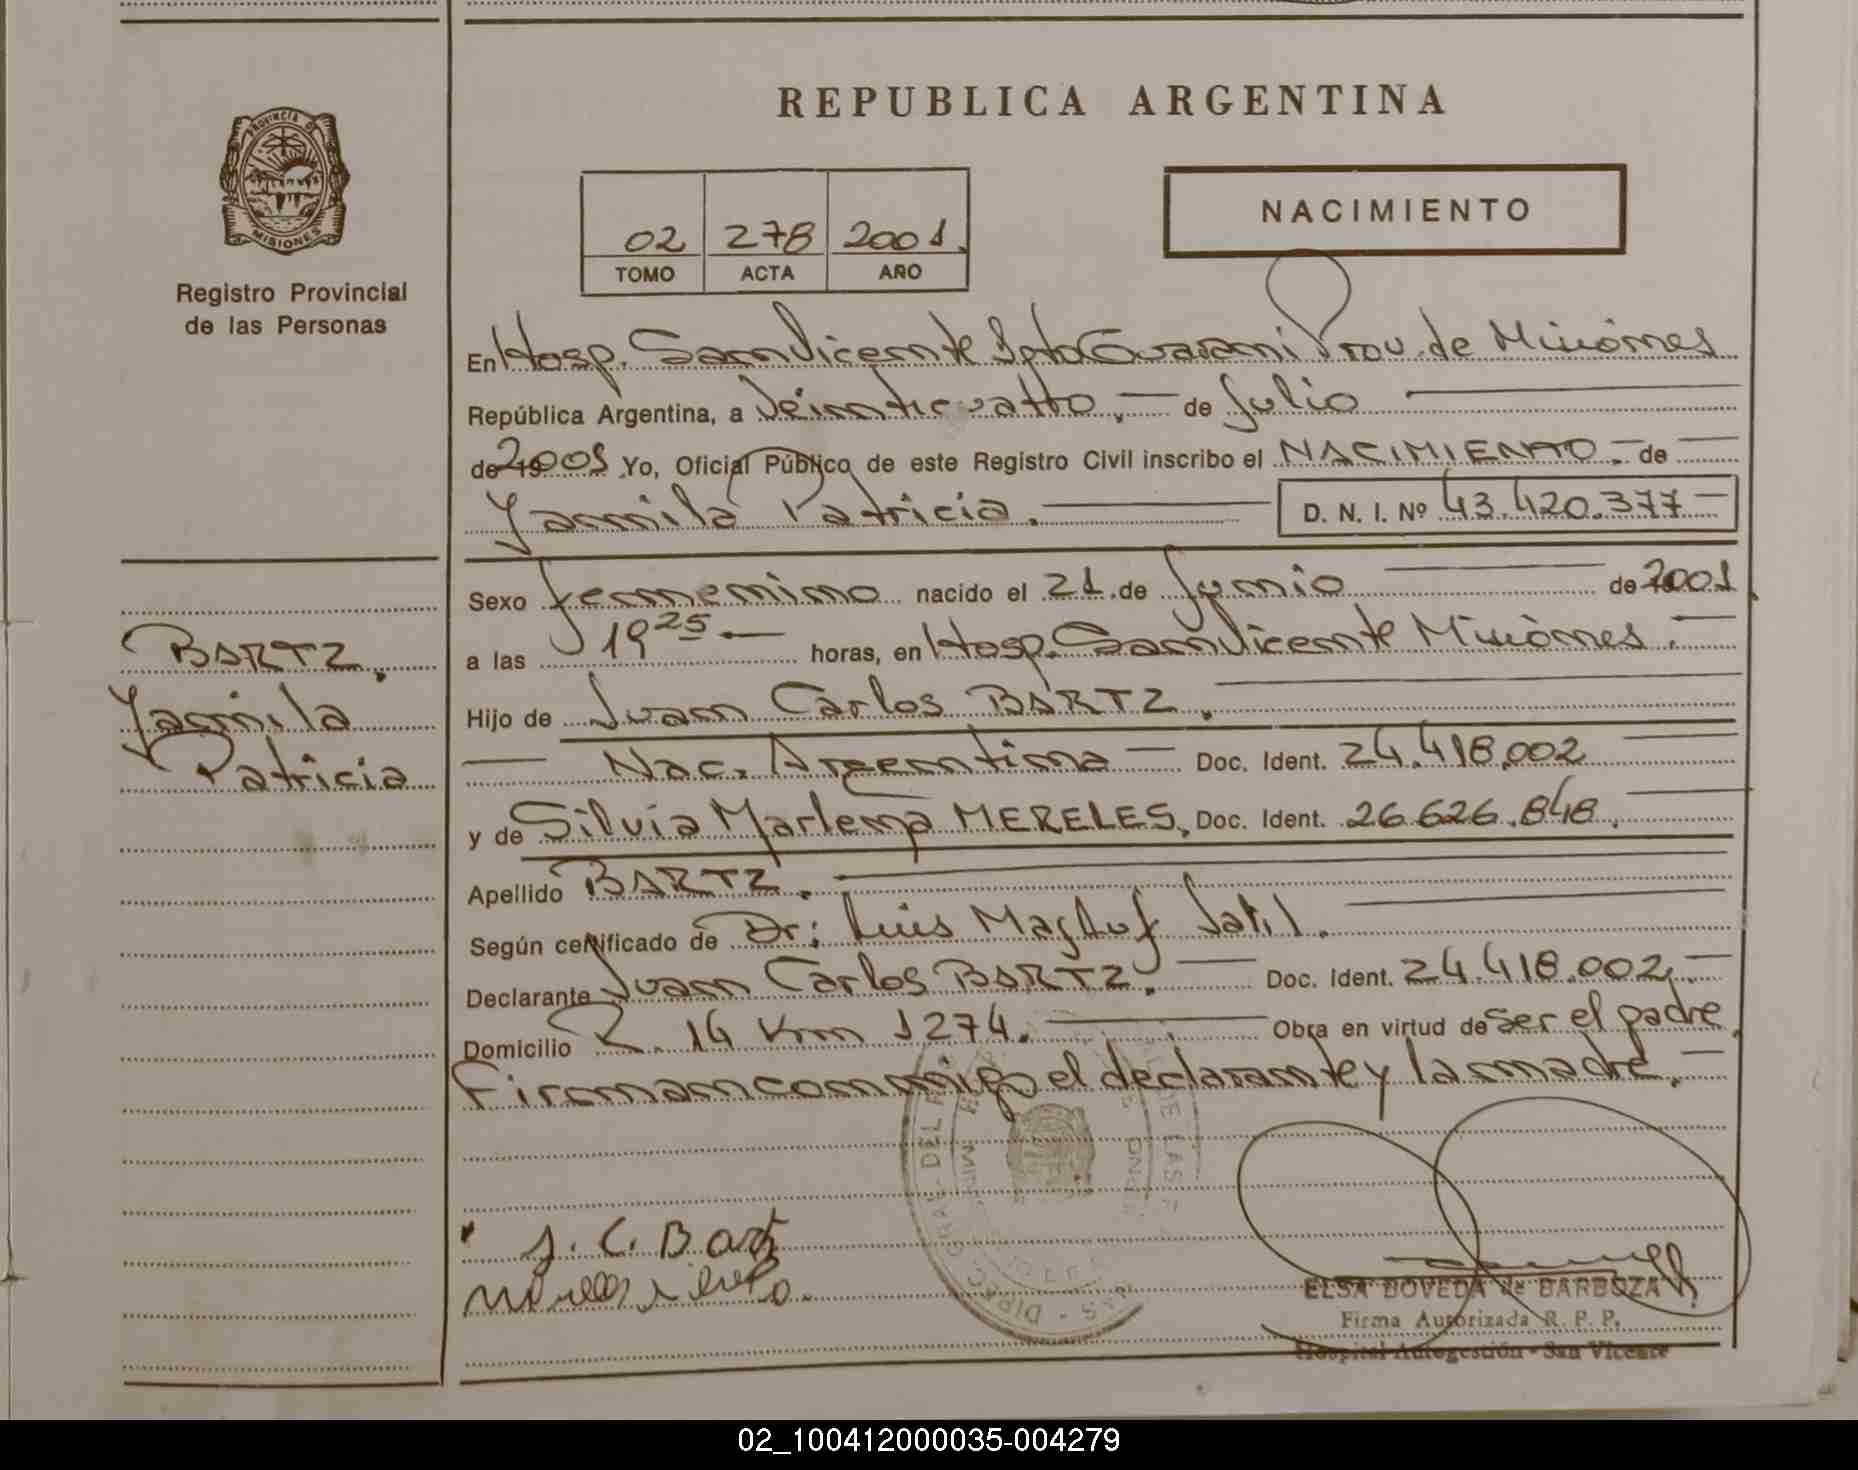 REPUBLICA ARGENTINA
PROVINCIA D
MISIONES
Registro Provincial
de las Personas
02 278 2001.
TOMO ACTA AÑO
NACIMIENTO
En Hosp. San Vicente Dpto Guaraní Prov. de Misiones
República Argentina, a Veinticuatro. — de Julio
de 19 2001 Yo, Oficial Público de este Registro Civil inscribo el NACIMIENTO. — de
Yamila Patricia.
D. N. I. Nº 43.420.377 —
Sexo femenino nacido el 21 de Junio de 2001
a las 19 25 — horas, en Hosp. San Vicente Misiones. —
Hijo de Juan Carlos BARTZ.
— Nac. Argentina — Doc. Ident. 24.418.002
y de Silvia Marlena MERELES, Doc. Ident. 26.626.848.
Apellido BARTZ.
Según certificado de Dr: Luis Magluf
Declarante Juan Carlos BARTZ. — Doc. Ident. 24.418.002. —
Domicilio R. 14 Km 1274. — Obra en virtud de ser el padre.
Firman conmigo el declarante y la madre. —
BARTZ.
Yamila
Patricia
J. C. Bartz
ELSA BOVEDA de BARBOZA
Firma Autorizada R. P. P.
Hospital Autogestión - San Vicente
02_100412000035-004279